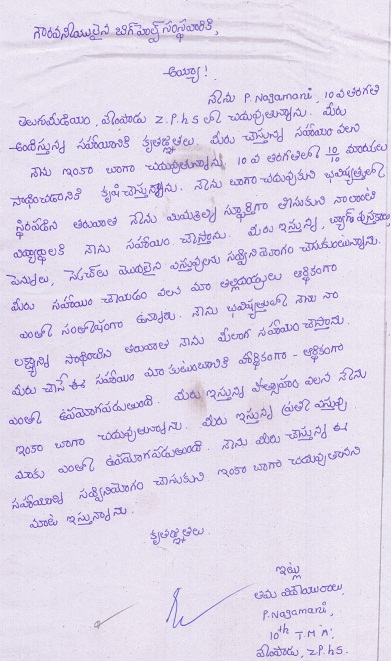 గౌరవనీయులైన బిగ్‌హెల్ప్ సంస్థవారికి,
అయ్యా!
నేను P. Nagamani, 10వ తరగతి
తెలుగుమీడియం, వేంపాడు Z.P.H.S లో చదువుతున్నాను. మీరు
అందిస్తున్న సహాయానికి కృతజ్ఞతలు. మీరు చేస్తున్న సహాయం వలన
నేను ఇంకా బాగా చదువుతున్నాను. 10వ తరగతిలో 10/10 మార్కులు
సాధించడానికి కృషి చేస్తున్నాను. నేను బాగా చదువుకుని భవిష్యత్తులో
స్థిరపడిన తరువాత నేను మిమ్మల్ని స్ఫూర్తిగా తీసుకుని నాలాంటి
విద్యార్థులకి నేను సహాయం చేస్తాను. మీరు ఇస్తున్న, బ్యాగ్ పుస్తకాలు
పెన్నులు, స్కెచ్‌లు మొదలైన వస్తువులను సద్వినియోగం చేసుకుంటున్నాను.
మీరు సహాయం చేయడం వలన మా తల్లిదండ్రులు ఆర్థికంగా
ఎంతో సంతోషంగా ఉన్నారు. నేను భవిష్యత్తులో నేను నా
లక్ష్యాన్ని సాధించిన తరువాత నేను మీలాగ సహాయం చేస్తాను.
మీరు చేసే ఈ సహాయం మా కుటుంబానికి హార్థికంగా - ఆర్థికంగా
ఎంతో ఉపయోగపడుతుంది. మీరు ఇస్తున్న ప్రోత్సాహం వలన నేను
ఇంకా బాగా చదువుతున్నాను. మీరు ఇస్తున్న ప్రతి వస్తువు
మాకు ఎంతో ఉపయోగపడుతుంది. నేను మీరు చేస్తున్న ఈ
సహాయాన్ని సద్వినియోగం చేసుకుని ఇంకా బాగా చదువుతానని
మాట ఇస్తున్నాను.
కృతజ్ఞతలు.
ఇట్లు
తమ విధేయురాలు,
P. Nagamani,
10th T.M 'A',
వేంపాడు, Z.P.H.S.